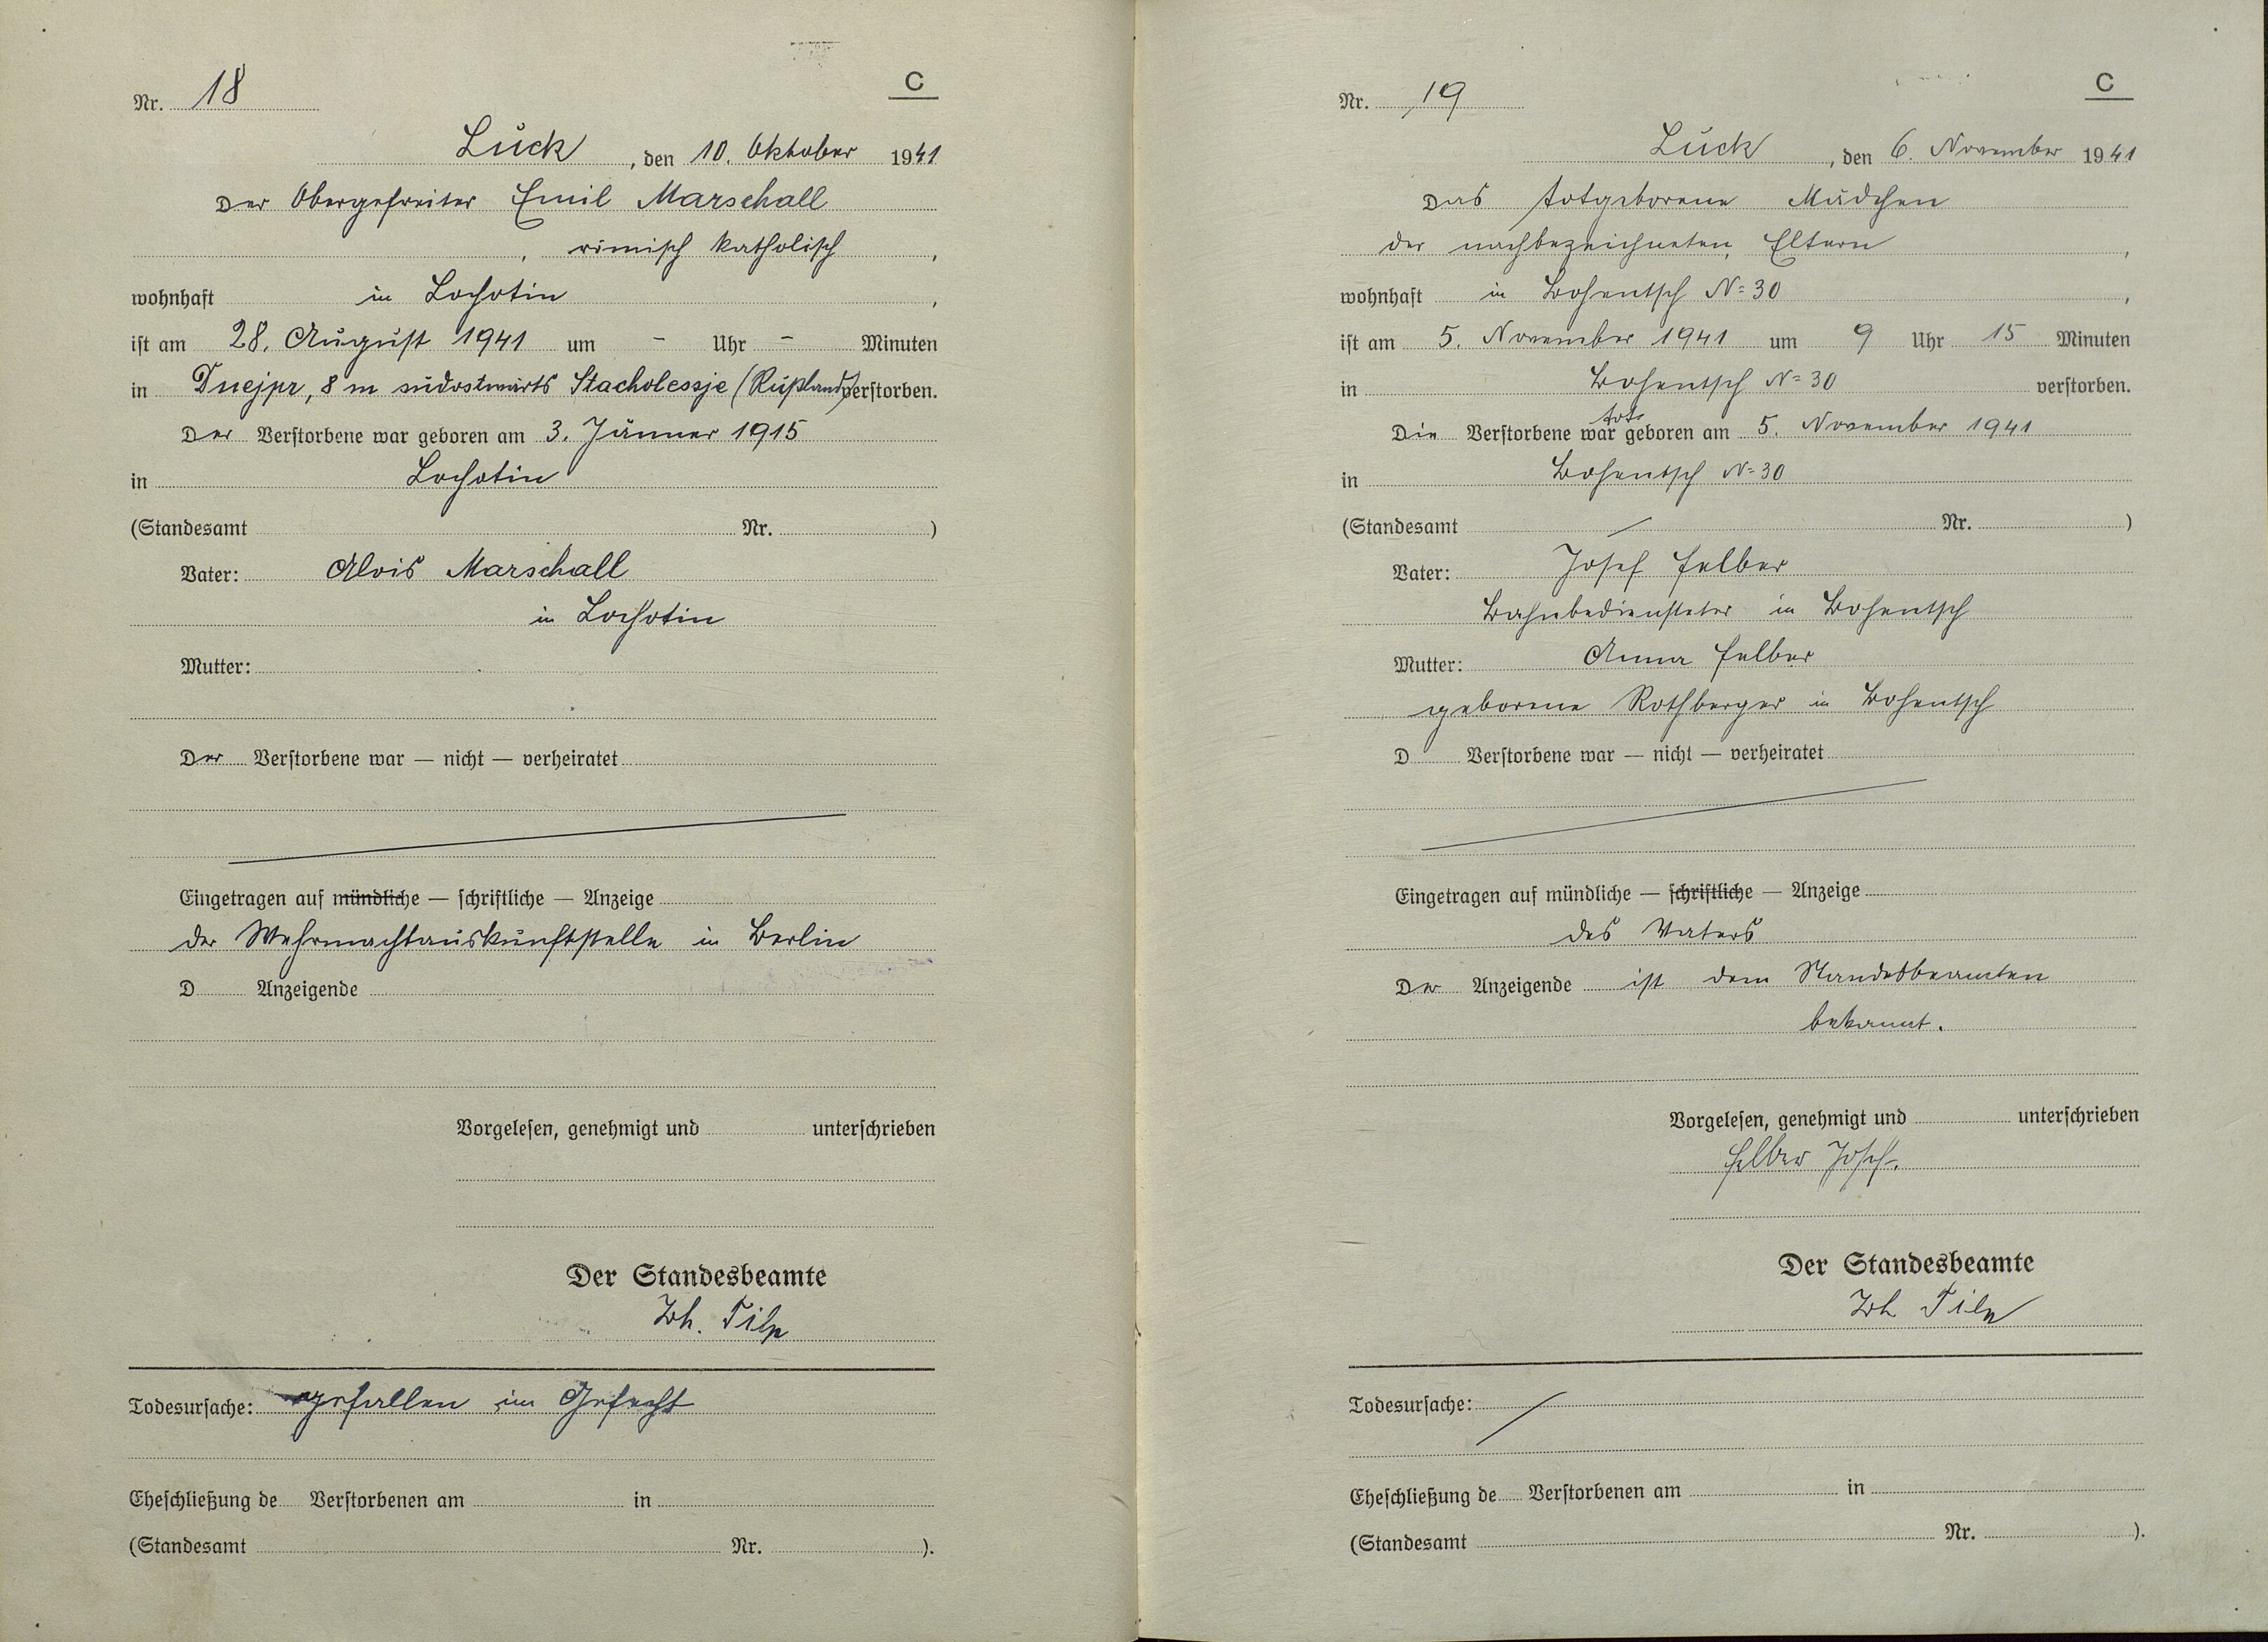 C
Nr. 18
Luck, den 10. Oktober 1941
Der Obergefreiter Emil Marschall
, römisch katholisch,
wohnhaft in Lochotin,
ist am 28. August 1941 um - Uhr - Minuten
in Dnejpr, 8 m südostwärts Stacholessje (Rußland) verstorben.
Der Verstorbene war geboren am 3. Jänner 1915
in Lochotin
(Standesamt Nr. )
Vater: Alois Marschall
in Lochotin
Mutter:
Der Verstorbene war — nicht — verheiratet
Eingetragen auf mündliche — schriftliche — Anzeige
der Wehrmachtauskunftstelle in Berlin
D Anzeigende
Vorgelesen, genehmigt und unterschrieben
Der Standesbeamte
Joh. Tilp
Todesursache: gefallen im Gefecht
Eheschließung de Verstorbenen am in
(Standesamt Nr. ).
C
Nr. 19
Luck, den 6. November 1941
Das totgeborene Mädchen
der nachbezeichneten Eltern,
wohnhaft in Bohentsch N= 30,
ist am 5. November 1941 um 9 Uhr 15 Minuten
in Bohentsch N= 30 verstorben.
tot
Die Verstorbene war geboren am 5. November 1941
in Bohentsch N= 30
(Standesamt / Nr. )
Vater: Josef Felber
Bahnbediensteter in Bohentsch
Mutter: Anna Felber
geborene Rothberger in Bohentsch
D Verstorbene war — nicht — verheiratet
Eingetragen auf mündliche — schriftliche — Anzeige
des Vaters
Der Anzeigende ist dem Standesbeamten
bekannt.
Vorgelesen, genehmigt und unterschrieben
Felber Josef.
Der Standesbeamte
Joh Tilp
Todesursache: /
Eheschließung de Verstorbenen am in
(Standesamt Nr. ).